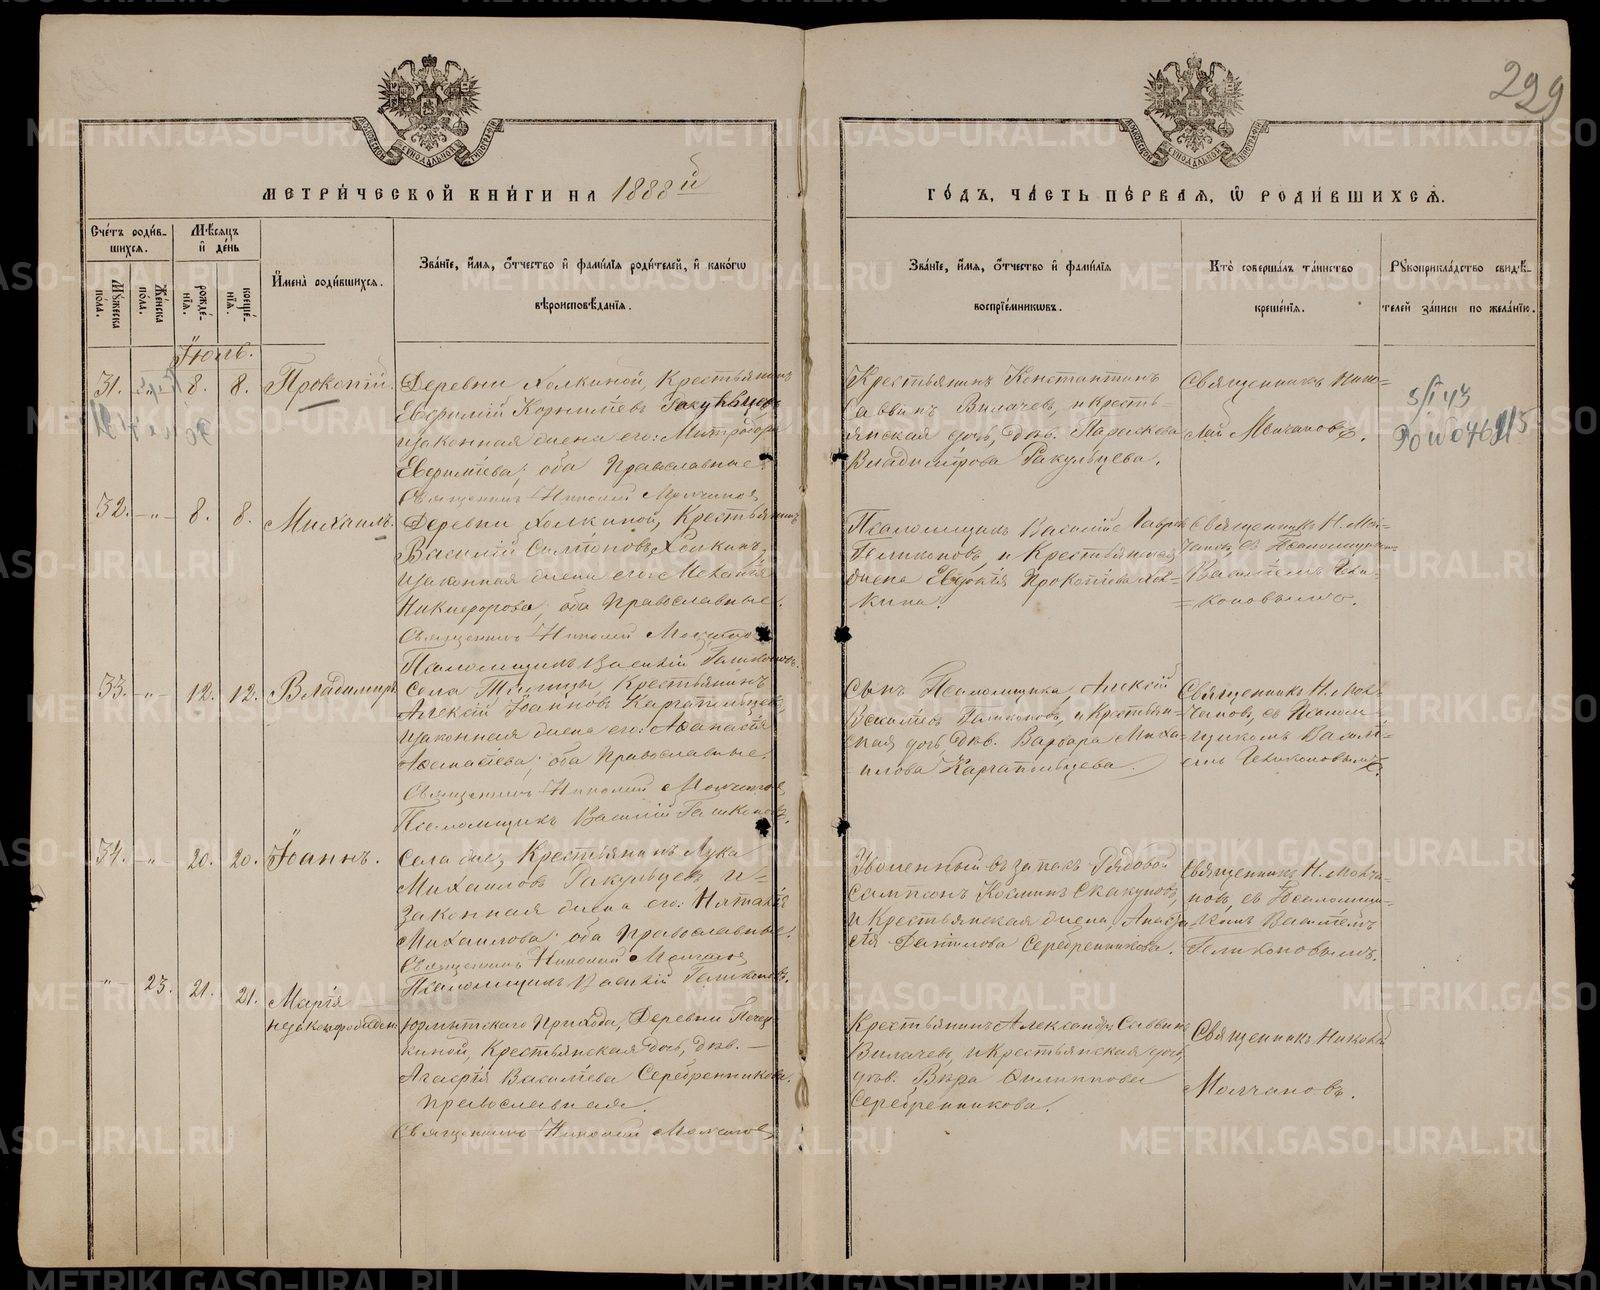 299
МЕТРИ́ЧЕСКОЙ КНИ́ГИ НА 1888й
ГО́ДЪ, ЧА́СТЬ ПЕ́РВАЯ, Ѡ РОДИ́ВШИХСѦ.
Сче́тъ роди́в-
шихся.
Мѣ́сяцъ
и҆ де́нь
Му́жеска
по́ла.
Же́нска
по́ла.
рожде́-
нїѧ.
креще́-
нїѧ.
И҆мена̀ роди́вшихсѧ.
Зва́нїе, и҆́мѧ, ѻ҆́тчество и҆ фами́лїѧ роди́телей, и҆ како́гѡ
вѣроисповѣ́данїѧ.
Зва́нїе, и҆́мѧ, ѻ҆́тчество и҆ фами́лїѧ
воспрїе́мникѡвъ.
Кто̀ соверша́лъ та́инство
креще́нїѧ.
Рꙋкоприкла́дство свидѣ́-
телей за́писи по жела́нїю.
Іюль.
31.
8.
8.
Прокопій.
Деревни Холкиной, Крестьянинъ
Евфимій Корнилїевъ Ракульцевъ
и законная жена его: Митродора
Евфимїева; оба Православные.
Священникъ Николай Молчановъ
Крестьянинъ Константинъ
Саввинъ Вилачевъ, и Кресть-
янская дочь, дѣв. Параскева
Владимїрова Ракульцева.
Священникъ Нико-
лай Молчановъ.
5/I 43
32.
-"-
8.
8.
Михаилъ.
Деревни Холкиной, Крестьянинъ
Василій Симїоновъ Холкинъ,
и законная жена его: Меланія
Никифорова; оба Православные.
Священникъ Николай Молчановъ
Псаломщикъ Василій Геликоновъ.
Псаломщикъ Василій
Геликоновъ, и Крестьянская
жена Евдокїя Прокопїева Хол-
кина.
Священникъ Н. Мол-
чановъ, съ Псаломщикомъ
Василїемъ Гели-
коновымъ.
33.
-"-
12.
12.
Владимиръ
Села Крестьянинъ
Алексій Іоанновъ Каргапольцевъ,
и законная жена его: Аѳанасїя
оба Православные.
Священникъ Николай Молчановъ
Псаломщикъ Василій Геликоновъ.
Сынъ Псаломщика, Алексій
Василїевъ Геликоновъ, и Крестьян-
ская дочь, дѣв. Варвара Миха-
илова Каргапольцева.
Священникъ Н. Мол-
чановъ, съ Псалом-
щикомъ Васил-
емъ Геликоновымъ.
34.
"
20.
20.
Іоаннъ.
Села сего, Крестьянинъ Лука
Михаиловъ Ракульцевъ, и
законная жена его: Наталія
Михаилова; оба Православные.
Священникъ Николай Молчановъ
Псаломщикъ Василій Геликоновъ.
Уволенный въ запасъ Рядовой
Сампсонъ Косминъ Скакуновъ,
и Крестьянская жена, Анаста
сїя Данїлова Серебренникова.
Священникъ Н. Молча-
новъ, съ Псаломщи-
комъ Василїемъ
Геликоновымъ.
"
23.
21.
21.
Марія
незаконнорожден.
Юрмытскаго Прихода, Деревни
Крестьянская дочь, дѣв. —
Агафїя Василїева Серебренникова.
Православная.
Священникъ Николай Молчановъ
Крестьянинъ Александръ Саввинъ
Вилачевъ, и Крестьянская дочь,
дѣв. Вѣра Филиппова
Серебренникова.
Священникъ Николай
Молчановъ.
METRIKI.GASO-URAL.RU